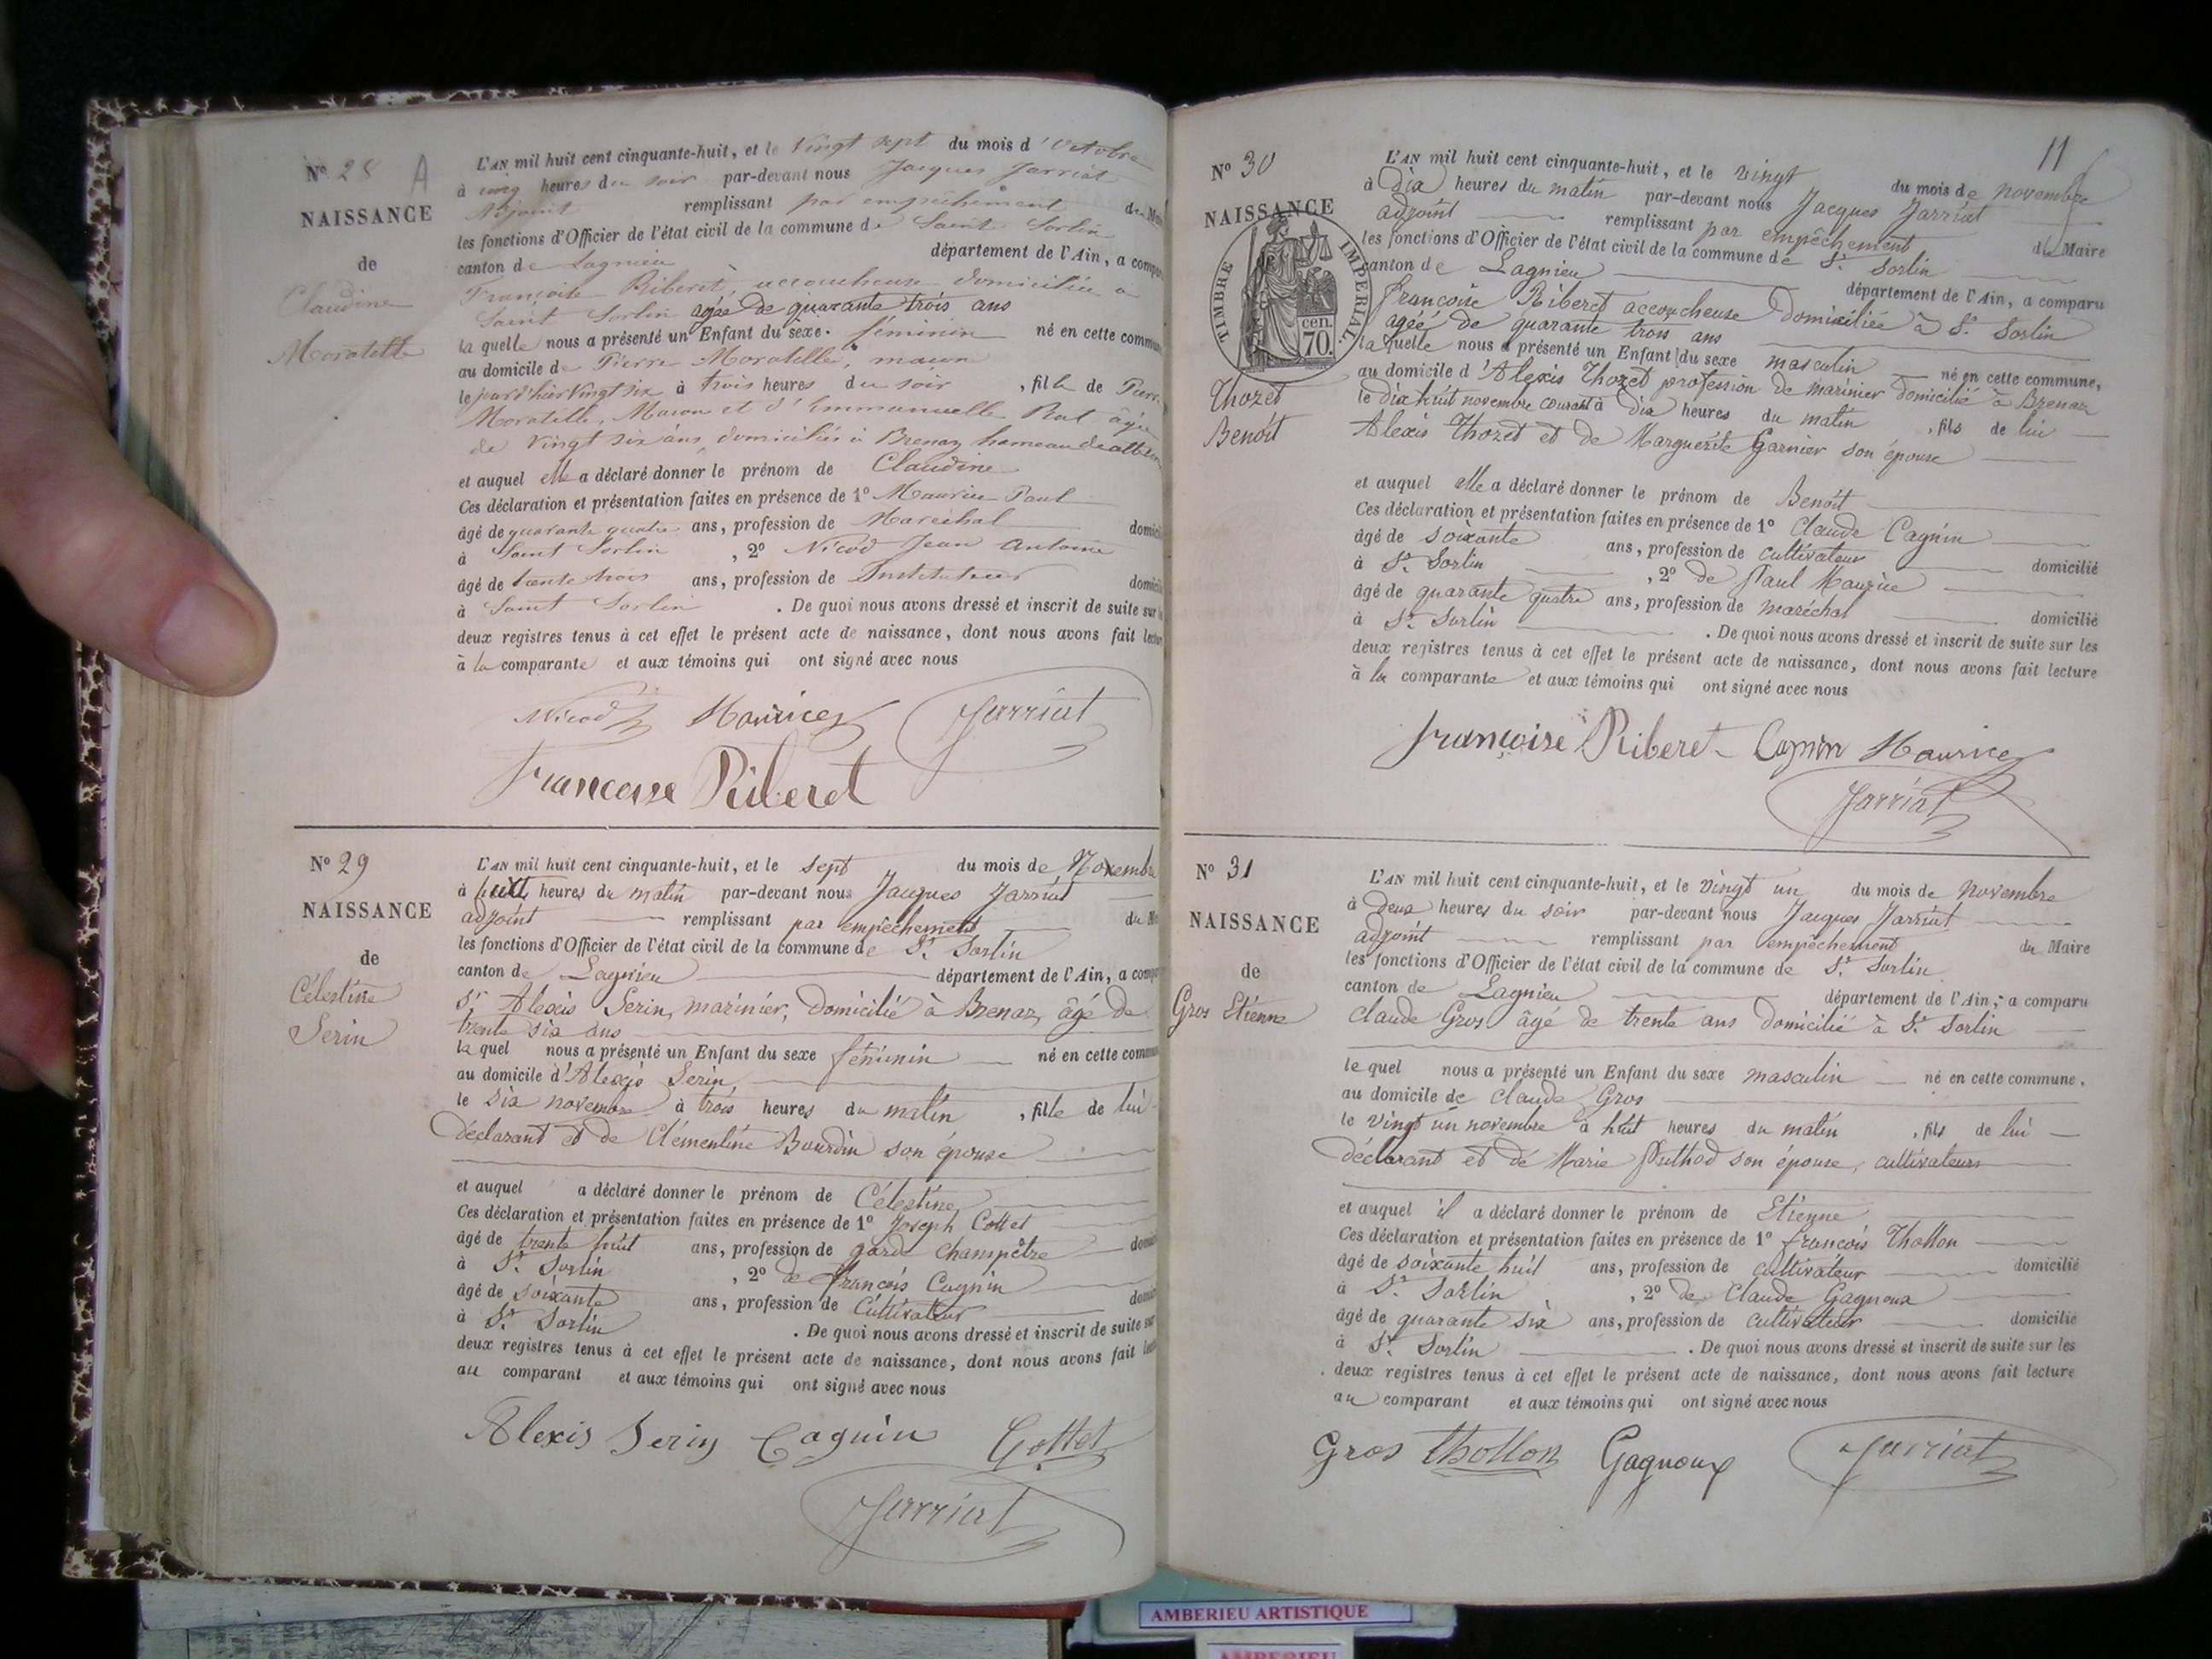 N° 28 A
NAISSANCE
de
Claudine
Moratelle
L'AN mil huit cent cinquante-huit, et le Vingt sept du mois d'Octobre
à cinq heures du soir par-devant nous Jacques Jarriat
Adjoint remplissant par empêchement du
les fonctions d'Officier de l'état civil de la commune de Saint Sorlin
canton de Lagnieu département de l'Ain, a
Françoise Riberet, accoucheuse domiciliée à
Saint Sorlin agée de quarante trois ans
la quelle nous a présenté un Enfant du sexe féminin né en cette
au domicile de Pierre Moratelle, maçon
le jour d'hier vingt six à trois heures du soir, fille de Pierre
Moratelle, Macon et d'Emmanuelle Rat âgée
de Vingt six ans, domiciliés à Brenaz hameau de
et auquel elle a déclaré donner le prénom de Claudine
Ces déclaration et présentation faites en présence de 1° Maurice Paul
âgé de quarante quatre ans, profession de Maréchal
à Saint Sorlin, 2° Nicod Jean Antoine
âgé de trente trois ans, profession de Instituteur
à Saint Sorlin. De quoi nous avons dressé et inscrit de suite sur
deux registres tenus à cet effet le présent acte de naissance, dont nous avons fait
à la comparante et aux témoins qui ont signé avec nous
Nicod Maurice Jarriat
Francoise Riberet
N° 29
NAISSANCE
de
Célestine
Serin
L'AN mil huit cent cinquante-huit, et le sept du mois de Novembre
à huit heures du matin par-devant nous Jacques Jarriat
adjoint remplissant par empêchement du
les fonctions d'Officier de l'état civil de la commune de St Sorlin
canton de Lagnieu département de l'Ain, a
Sr Alexis Serin, marinier, domicilié à Brenaz, âgé de
trente six ans
le quel nous a présenté un Enfant du sexe féminin né en cette
au domicile d'Alexis Serin,
le six novembre à trois heures du matin, fille de lui
déclarant et de Clémentine Bourdin son épouse
et auquel a déclaré donner le prénom de Célestine
Ces déclaration et présentation faites en présence de 1° Joseph Cottet
âgé de trente huit ans, profession de garde champêtre
à St Sorlin, 2° de françois Cagnin
âgé de soixante ans, profession de Cultivateur
à St Sorlin. De quoi nous avons dressé et inscrit de suite
deux registres tenus à cet effet le présent acte de naissance, dont nous avons fait
au comparant et aux témoins qui ont signé avec nous
Alexis Serin Cagnin Cottet
Jarriat
11
N° 30
NAISSANCE
TIMBRE IMPERIAL
70 cen.
Thozet
Benoît
L'AN mil huit cent cinquante-huit, et le vingt du mois de novembre
à Dix heures du matin par-devant nous Jacques Jarriat
adjoint remplissant par empêchement du Maire
les fonctions d'Officier de l'état civil de la commune de St Sorlin
canton de Lagnieu département de l'Ain, a comparu
françoise Riberet accoucheuse domiciliée à St Sorlin
agéé de quarante trois ans
la quelle nous a présenté un Enfant du sexe masculin né en cette commune,
au domicile d'Alexis Thozet profession de marinier domicilié à Brenaz
le dix huit novembre courant à dix heures du matin, fils de lui
Alexis Thozet et de Marguerite Garnier son épouse
et auquel elle a déclaré donner le prénom de Benoît
Ces déclaration et présentation faites en présence de 1° Claude Cagnin
âgé de soixante ans, profession de cultivateur
à St Sorlin, 2° de Paul Maurice domicilié
âgé de quarante quatre ans, profession de maréchal
à St Sorlin. De quoi nous avons dressé et inscrit de suite sur les domicilié
deux registres tenus à cet effet le présent acte de naissance, dont nous avons fait lecture
à la comparante et aux témoins qui ont signé avec nous
françoise Riberet Cagnin Maurice
Jarriat
N° 31
NAISSANCE
de
Gros Etienne
L'AN mil huit cent cinquante-huit, et le vingt un du mois de novembre
à deux heures du soir par-devant nous Jacques Jarriat
adjoint remplissant par empêchement du Maire
les fonctions d'Officier de l'état civil de la commune de St Sorlin
canton de Lagnieu département de l'Ain, a comparu
Claude Gros âgé de trente ans domicilié à St Sorlin
le quel nous a présenté un Enfant du sexe masculin né en cette commune,
au domicile de Claude Gros
le vingt un novembre à huit heures du matin, fils de lui
déclarant et de Marie Puthod son épouse, cultivateurs
et auquel il a déclaré donner le prénom de Etienne
Ces déclaration et présentation faites en présence de 1° françois Thollon
âgé de soixante huit ans, profession de cultivateur domicilié
à St Sorlin, 2° de Claude Gagnoux
âgé de quarante six ans, profession de cultivateur domicilié
à St Sorlin. De quoi nous avons dressé et inscrit de suite sur les
deux registres tenus à cet effet le présent acte de naissance, dont nous avons fait lecture
au comparant et aux témoins qui ont signé avec nous
Gros Thollon Gagnoux Jarriat
AMBERIEU ARTISTIQUE
AMBERIEU